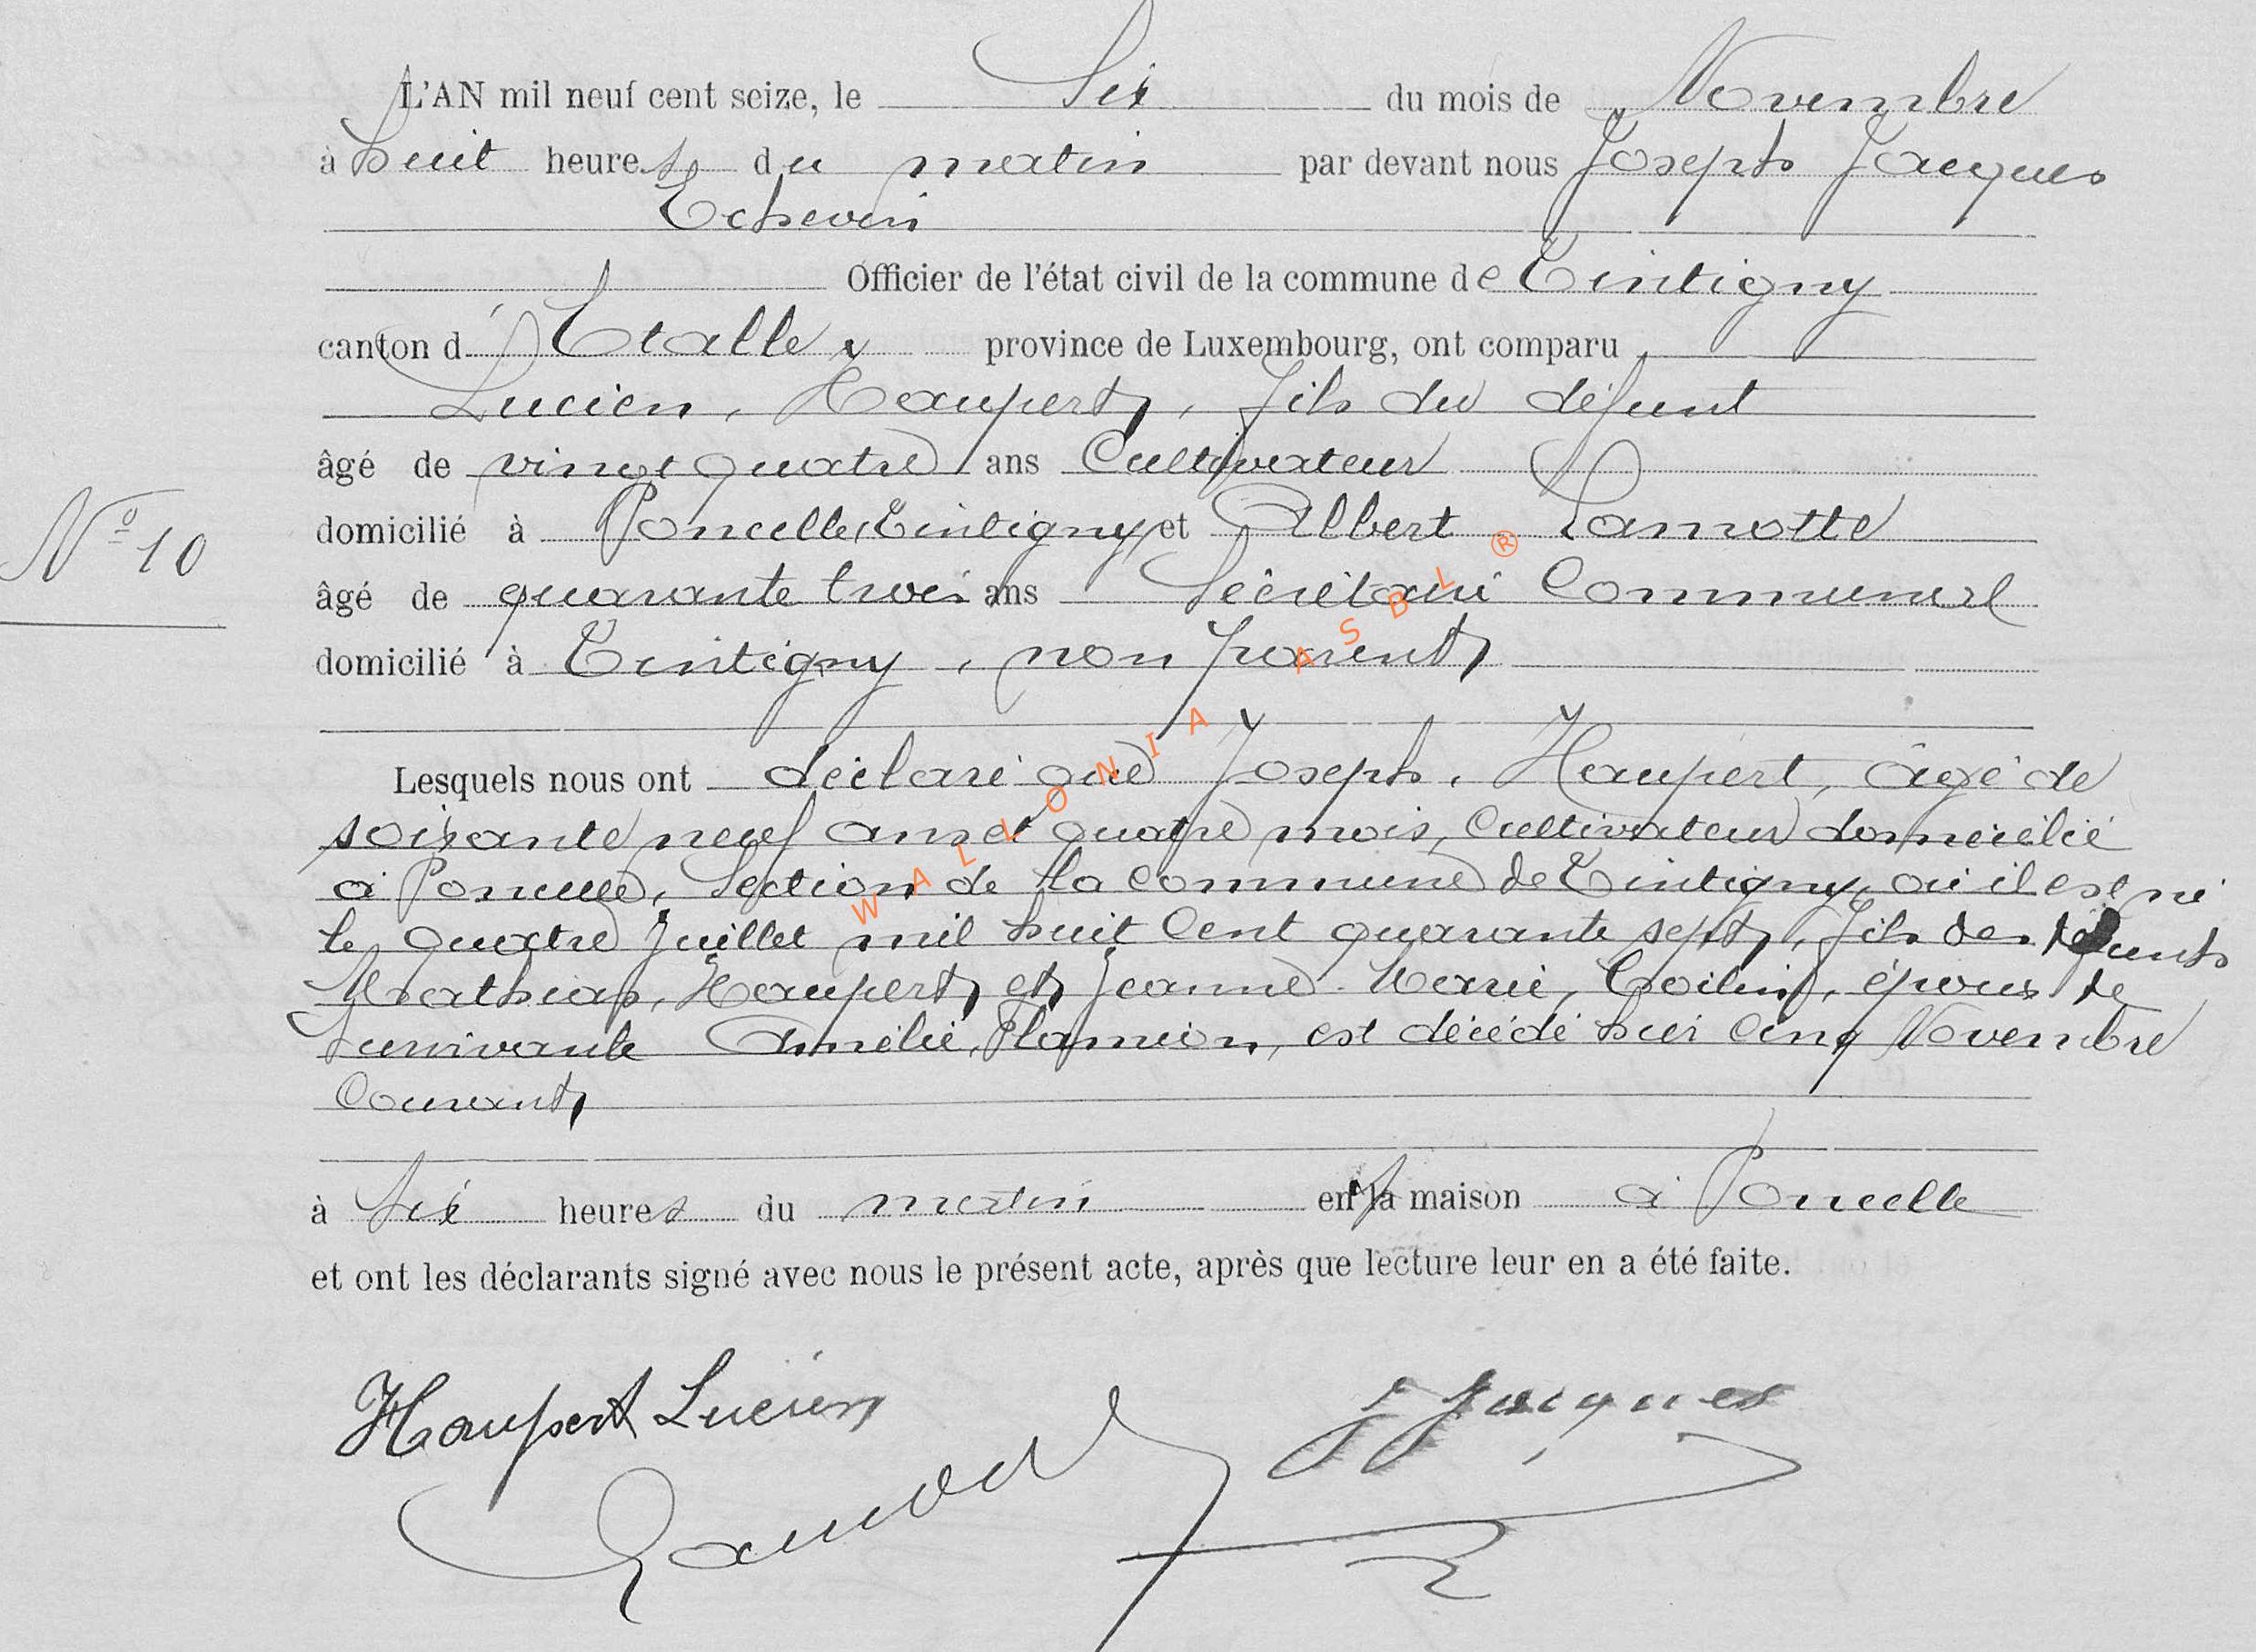 L'AN mil neuf cent seize, le Six du mois de Novembre
à huit heures du matin par devant nous Joseph Jacques
Echevin
Officier de l'état civil de la commune de Tintigny
canton d'Etalle province de Luxembourg, ont comparu
Lucien, Haupert, fils du défunt
âgé de vingt quatre ans Cultivateur
N° 10
domicilié à Poncelle, Tintigny et Albert Lamotte
âgé de quarante trois ans Secrétaire Communal
domicilié à Tintigny, non parent
Lesquels nous ont déclaré que Joseph, Haupert, âgé de
soixante neuf ans et quatre mois, Cultivateur domicilié
à Poncelle, Section de la Commune de Tintigny, où il est né
le quatre Juillet mil huit Cent quarante sept, fils des défunts
Mathias, Haupert, et Jeanne Marie, époux de
Survivante Amélie, Flamion, est décédé hier Cinq Novembre
Courant,
à six heures du matin en sa maison à Poncelle
et ont les déclarants signé avec nous le présent acte, après que lecture leur en a été faite.
Haupert Lucien
J Jacques
Lamotte
WALLONIA ASBL ®